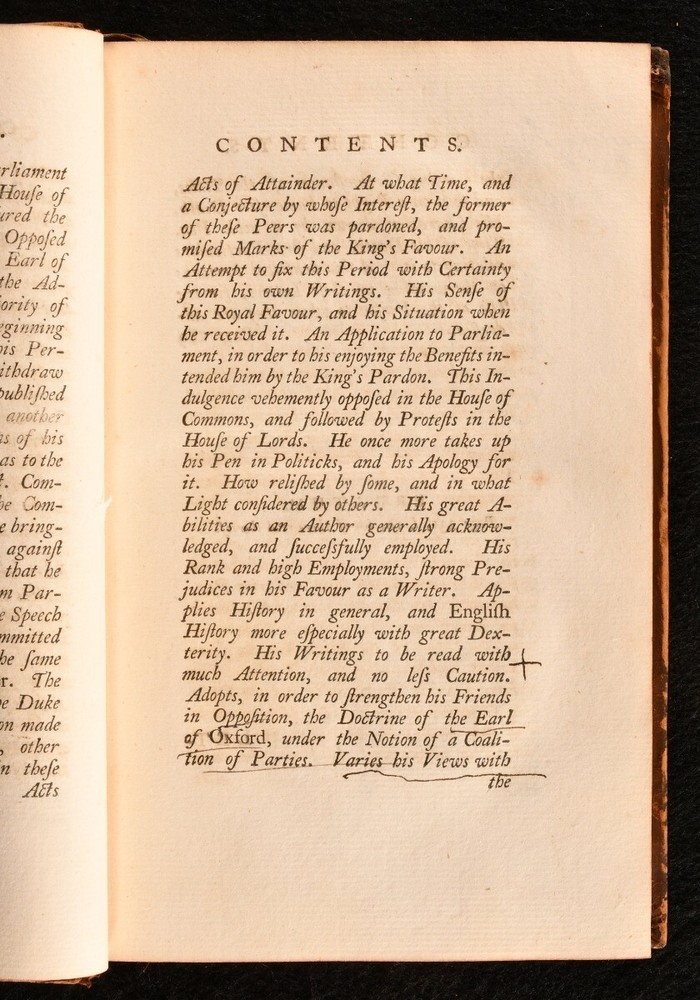 .
rliament
Houſe of
ured the
Oppoſed
Earl of
the Ad-
ority of
eginning
his Per-
ithdraw
publiſhed
another
ns of his
as to the
Com-
he Com-
e bring-
againſt
that he
m Par-
e Speech
mmitted
he ſame
r. The
e Duke
on made
, other
n theſe
Acts
CONTENTS.
Acts of Attainder. At what Time, and
a Conjecture by whoſe Intereſt, the former
of theſe Peers was pardoned, and pro-
miſed Marks of the King's Favour. An
Attempt to fix this Period with Certainty
from his own Writings. His Senſe of
this Royal Favour, and his Situation when
he received it. An Application to Parlia-
ment, in order to his enjoying the Benefits in-
tended him by the King's Pardon. This In-
dulgence vehemently oppoſed in the Houſe of
Commons, and followed by Proteſts in the
Houſe of Lords. He once more takes up
his Pen in Politicks, and his Apology for
it. How reliſhed by ſome, and in what
Light conſidered by others. His great A-
bilities as an Author generally acknow-
ledged, and ſucceſsfully employed. His
Rank and high Employments, ſtrong Pre-
judices in his Favour as a Writer. Ap-
plies Hiſtory in general, and Engliſh
Hiſtory more eſpecially with great Dex-
terity. His Writings to be read with
much Attention, and no leſs Caution.
Adopts, in order to ſtrengthen his Friends
in Oppoſition, the Doctrine of the Earl
of Oxford, under the Notion of a Coali-
tion of Parties. Varies his Views with
the